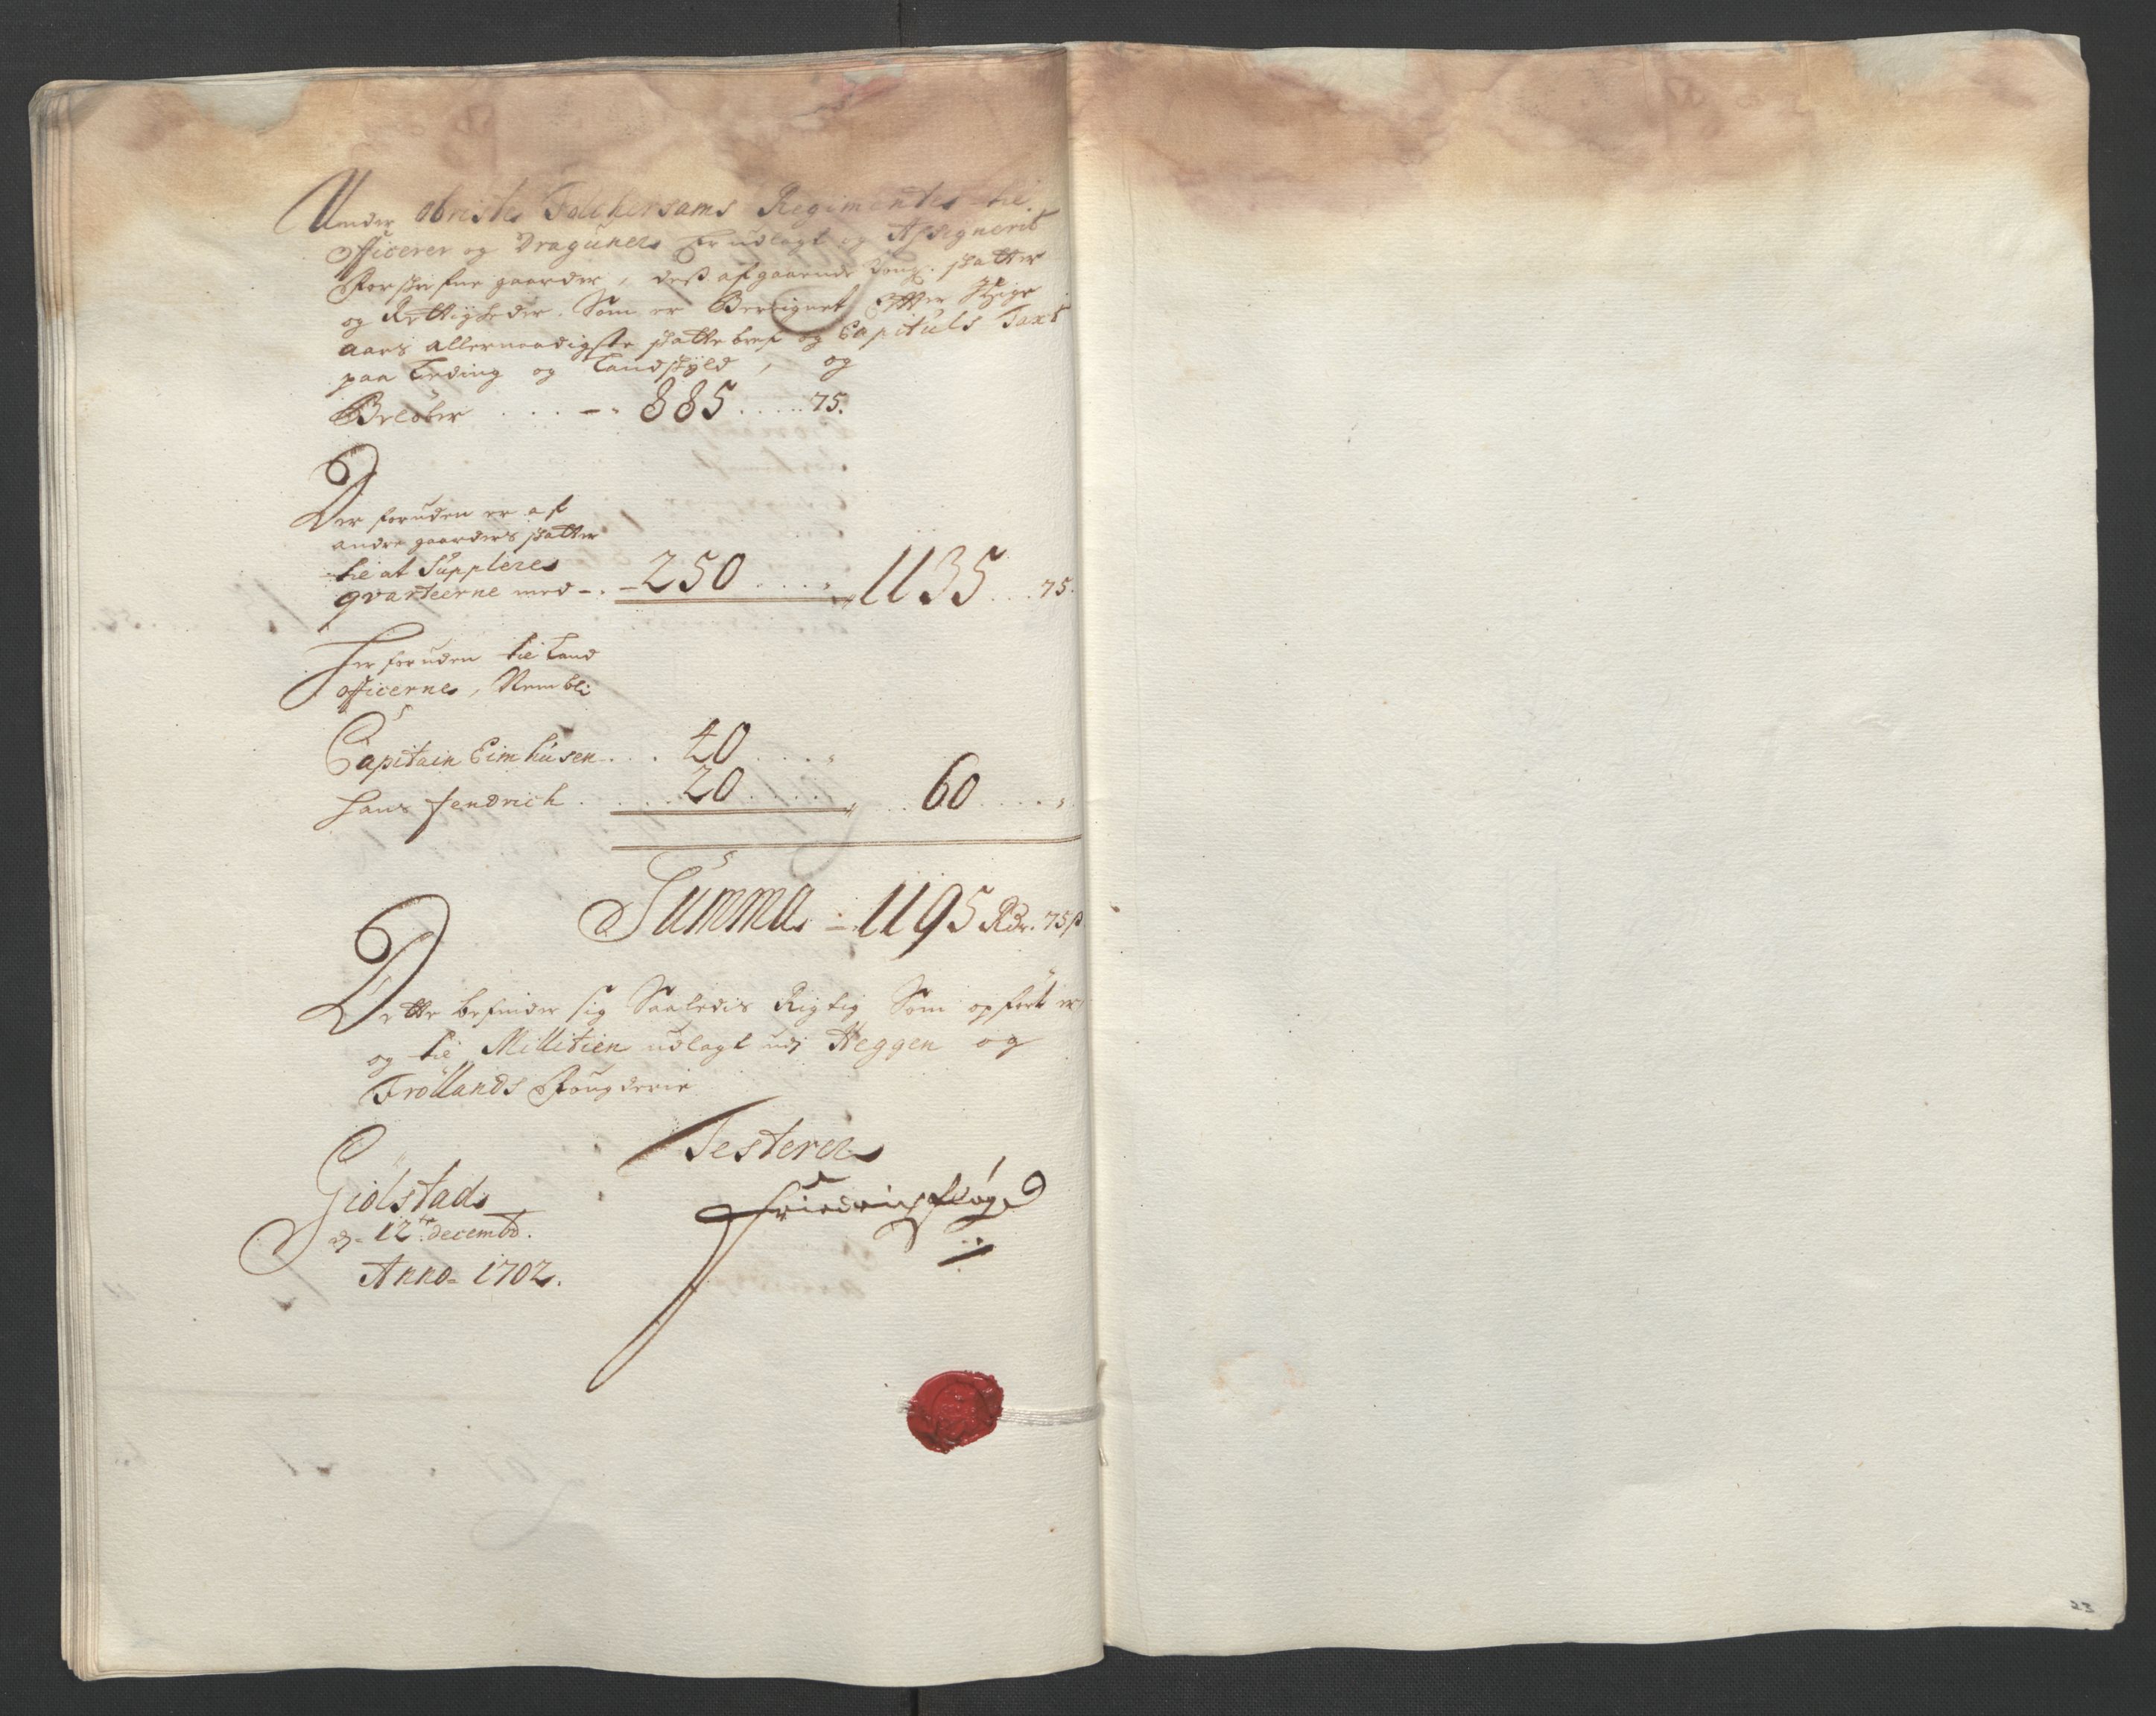 Under Obriste Folchersams Regimentes til
officerer og Draguner Er udlagt og Assignerit
Forskrefne gaarder, dess afgaaende Kong: skatter
og Rettigheder. Som er Beregnet Efter Heige
aars allernaadigste skattebref og Capituls Taxt
paa Leding og Landskyld, og
Beløber . . . . - . 885 . . . . . 75.
Der foruden er af
andre gaarders skatter
til at Supplere
qvarteerne med - . - 250 . . . . „ 1135 . . . 75.
Her foruden til Land
officerne, Nembl:
Capitain Eimhusen . . . 40 . . . . „
Hans fendrich . . . . . 20 . . . . . „ . . 60 . . . . „
Summa - 1195 Rdr. 75 s
Dette befinder sig Saaledis Rigtig Som opført er,
og til Millitien udlagt udj Heggen og
Frøllands Fougderie
Testerer
Giølstad
d. 12te decembr.
Anno 1702.
23